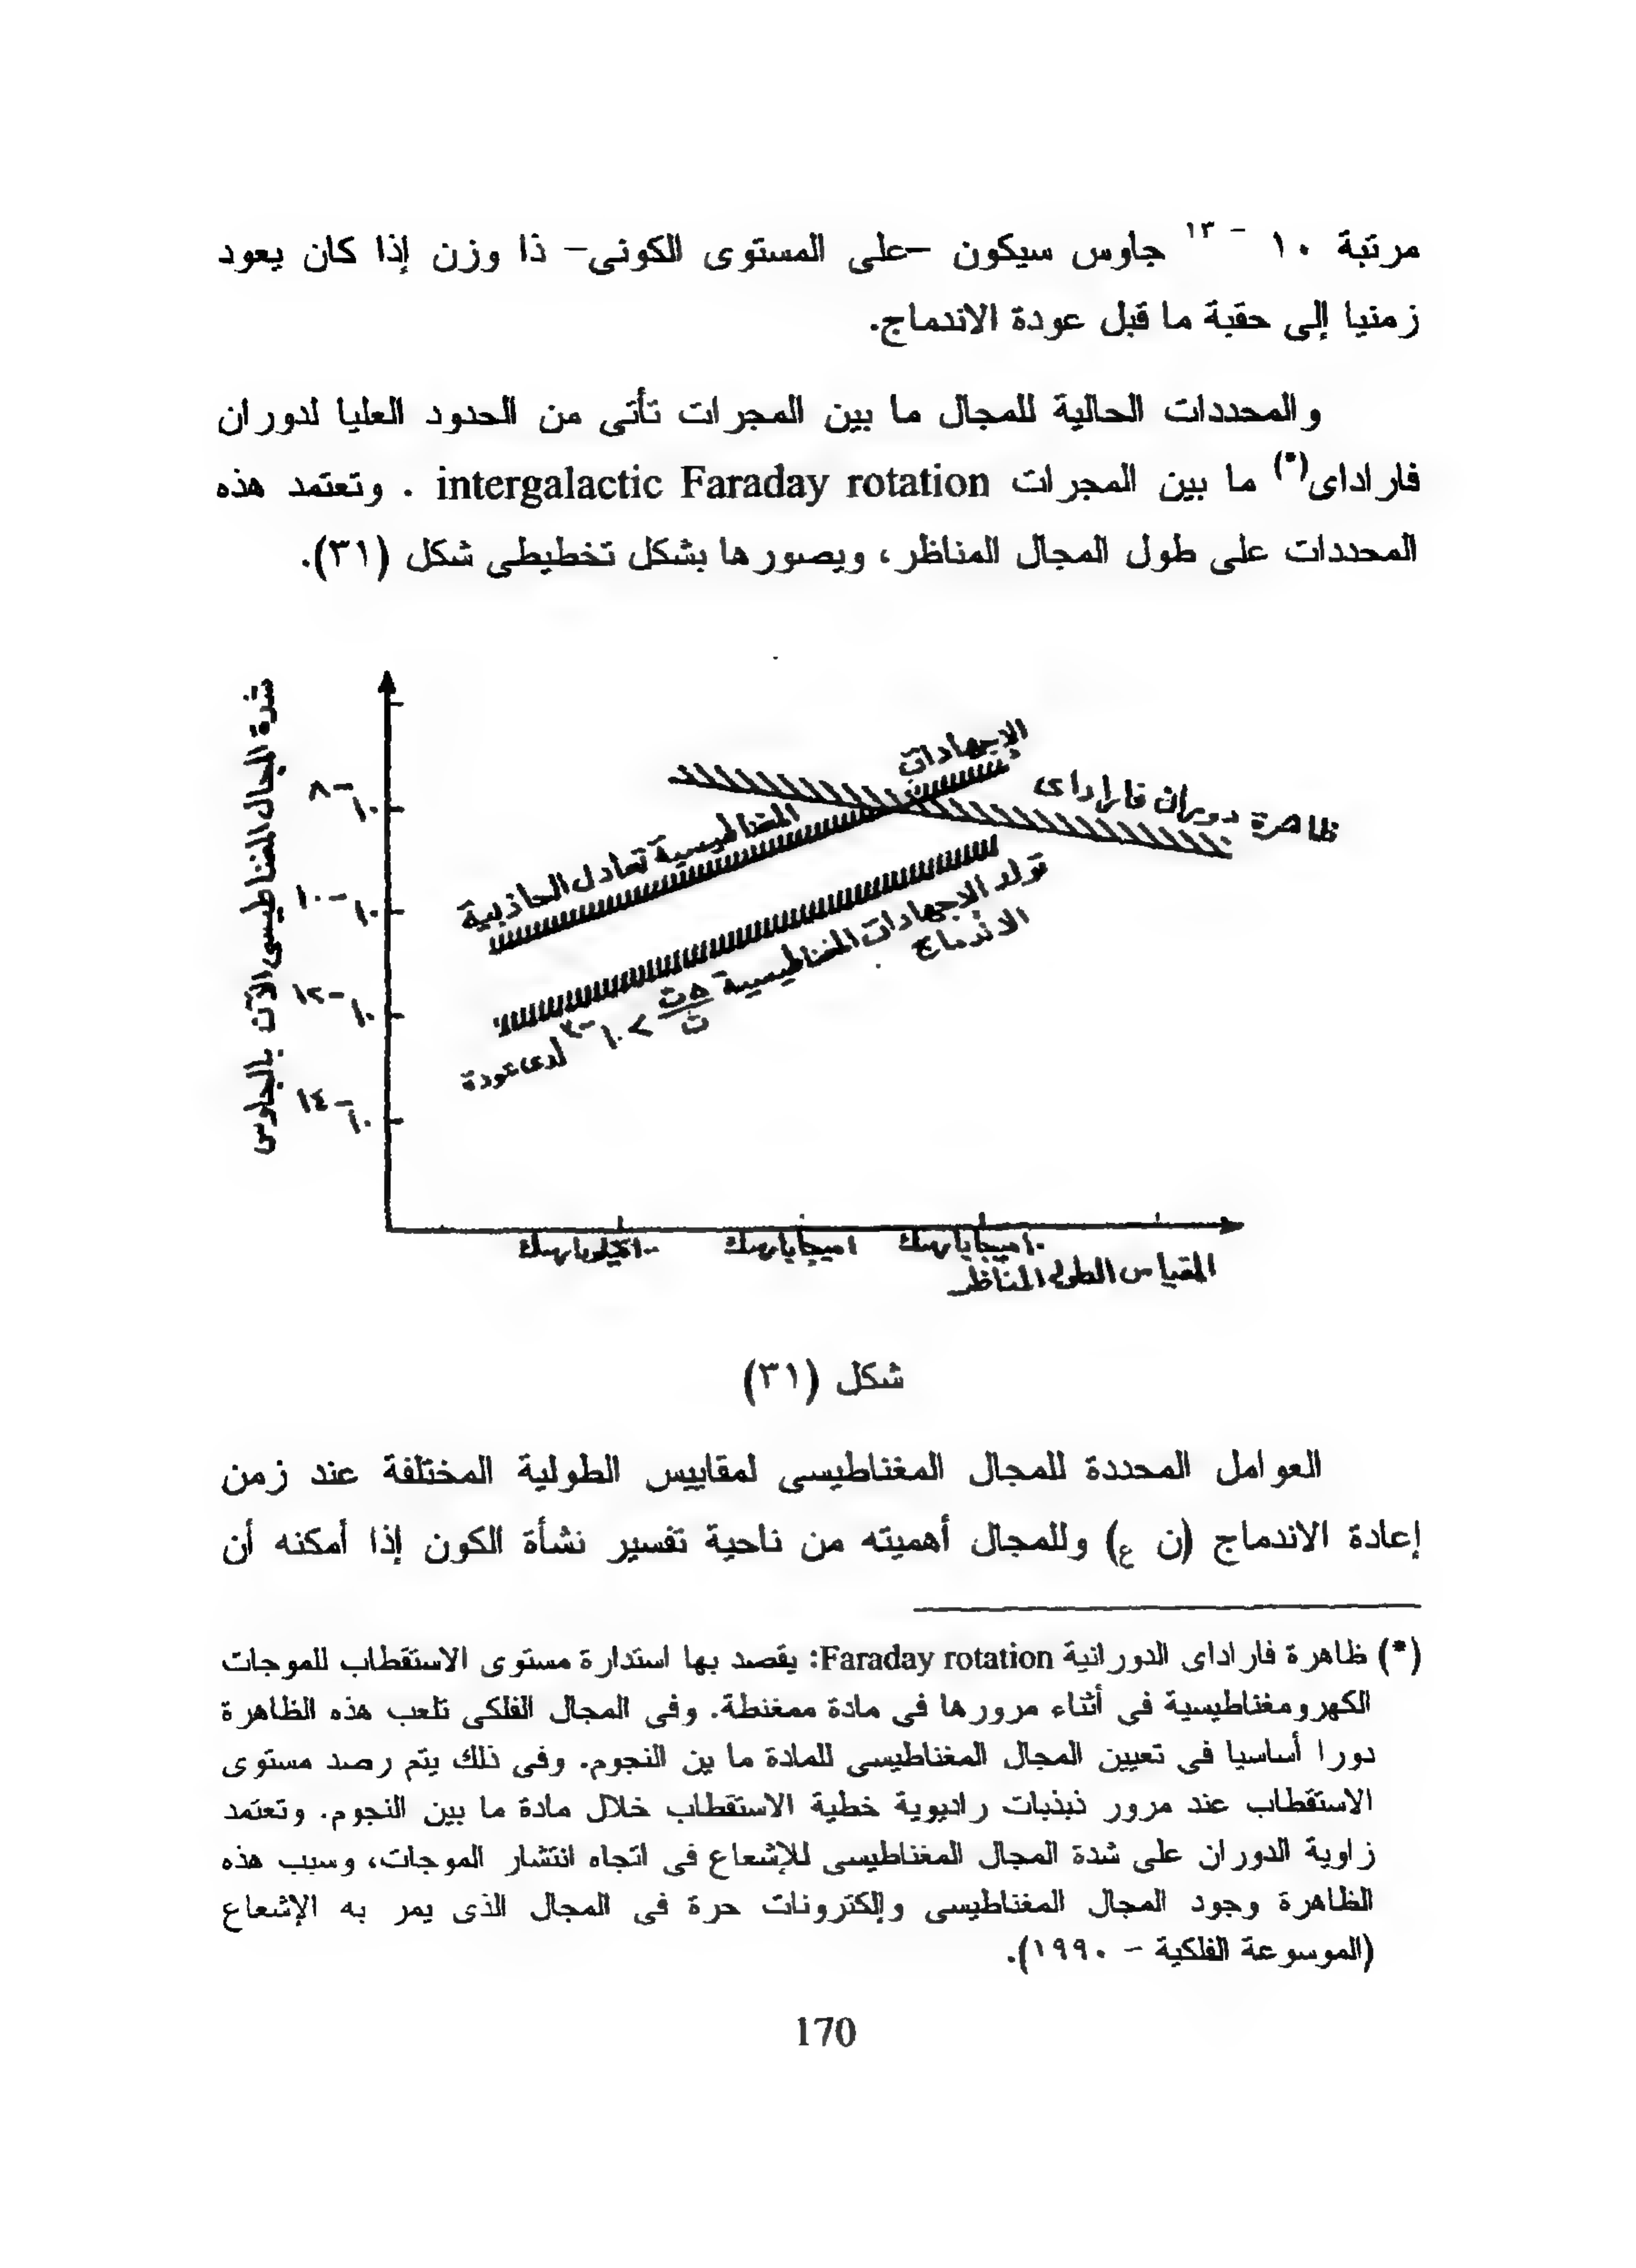 مرتبة ١٠ – ١٣ جاوس سيكون –على المستوى الكونى– ذا وزن إذا كان يعود
زمنيا إلى حقبة ما قبل عودة الاندماج.
والمحددات الحالية للمجال ما بين المجرات تأتى من الحدود العليا لدوران
فاراداى(*) ما بين المجرات intergalactic Faraday rotation . وتعتمد هذه
المحددات على طول المجال المناظر، ويصورها بشكل تخطيطى شكل (٣١).
شدة المجال المغناطيسى الآن بالجاوس
١٠ −٨
١٠ −١٠
١٠ −١٢
١٠ −١٤
الإجهادات
المغناطيسية تعادل الجاذبية
ظاهرة دوران فاراداى
تولد الاجهادات المغناطيسية
< ١٠ −٣ لدى عودة
الاندماج
١٠٠ كيلوبارسك
١ ميجابارسك
١٠ ميجابارسك
المقياس الطولى المناظر
شكل (٣١)
العوامل المحددة للمجال المغناطيسى لمقاييس الطولية المختلفة عند زمن
إعادة الاندماج (ن ع) وللمجال أهميته من ناحية تفسير نشأة الكون إذا أمكنه أن
(*) ظاهرة فاراداى الدورانية Faraday rotation: يقصد بها استدارة مستوى الاستقطاب للموجات
الكهرومغناطيسية فى أثناء مرورها فى مادة ممغنطة. وفى المجال الفلكى تلعب هذه الظاهرة
دورا أساسيا فى تعيين المجال المغناطيسى للمادة ما ين النجوم. وفى ذلك يتم رصد مستوى
الاستقطاب عند مرور ذبذبات راديوية خطية الاستقطاب خلال مادة ما بين النجوم. وتعتمد
زاوية الدوران على شدة المجال المغناطيسى للإشعاع فى اتجاه انتشار الموجات، وسبب هذه
الظاهرة وجود المجال المغناطيسى وإلكترونات حرة فى المجال الذى يمر به الإشعاع
(الموسوعة الفلكية – ١٩٩٠).
170